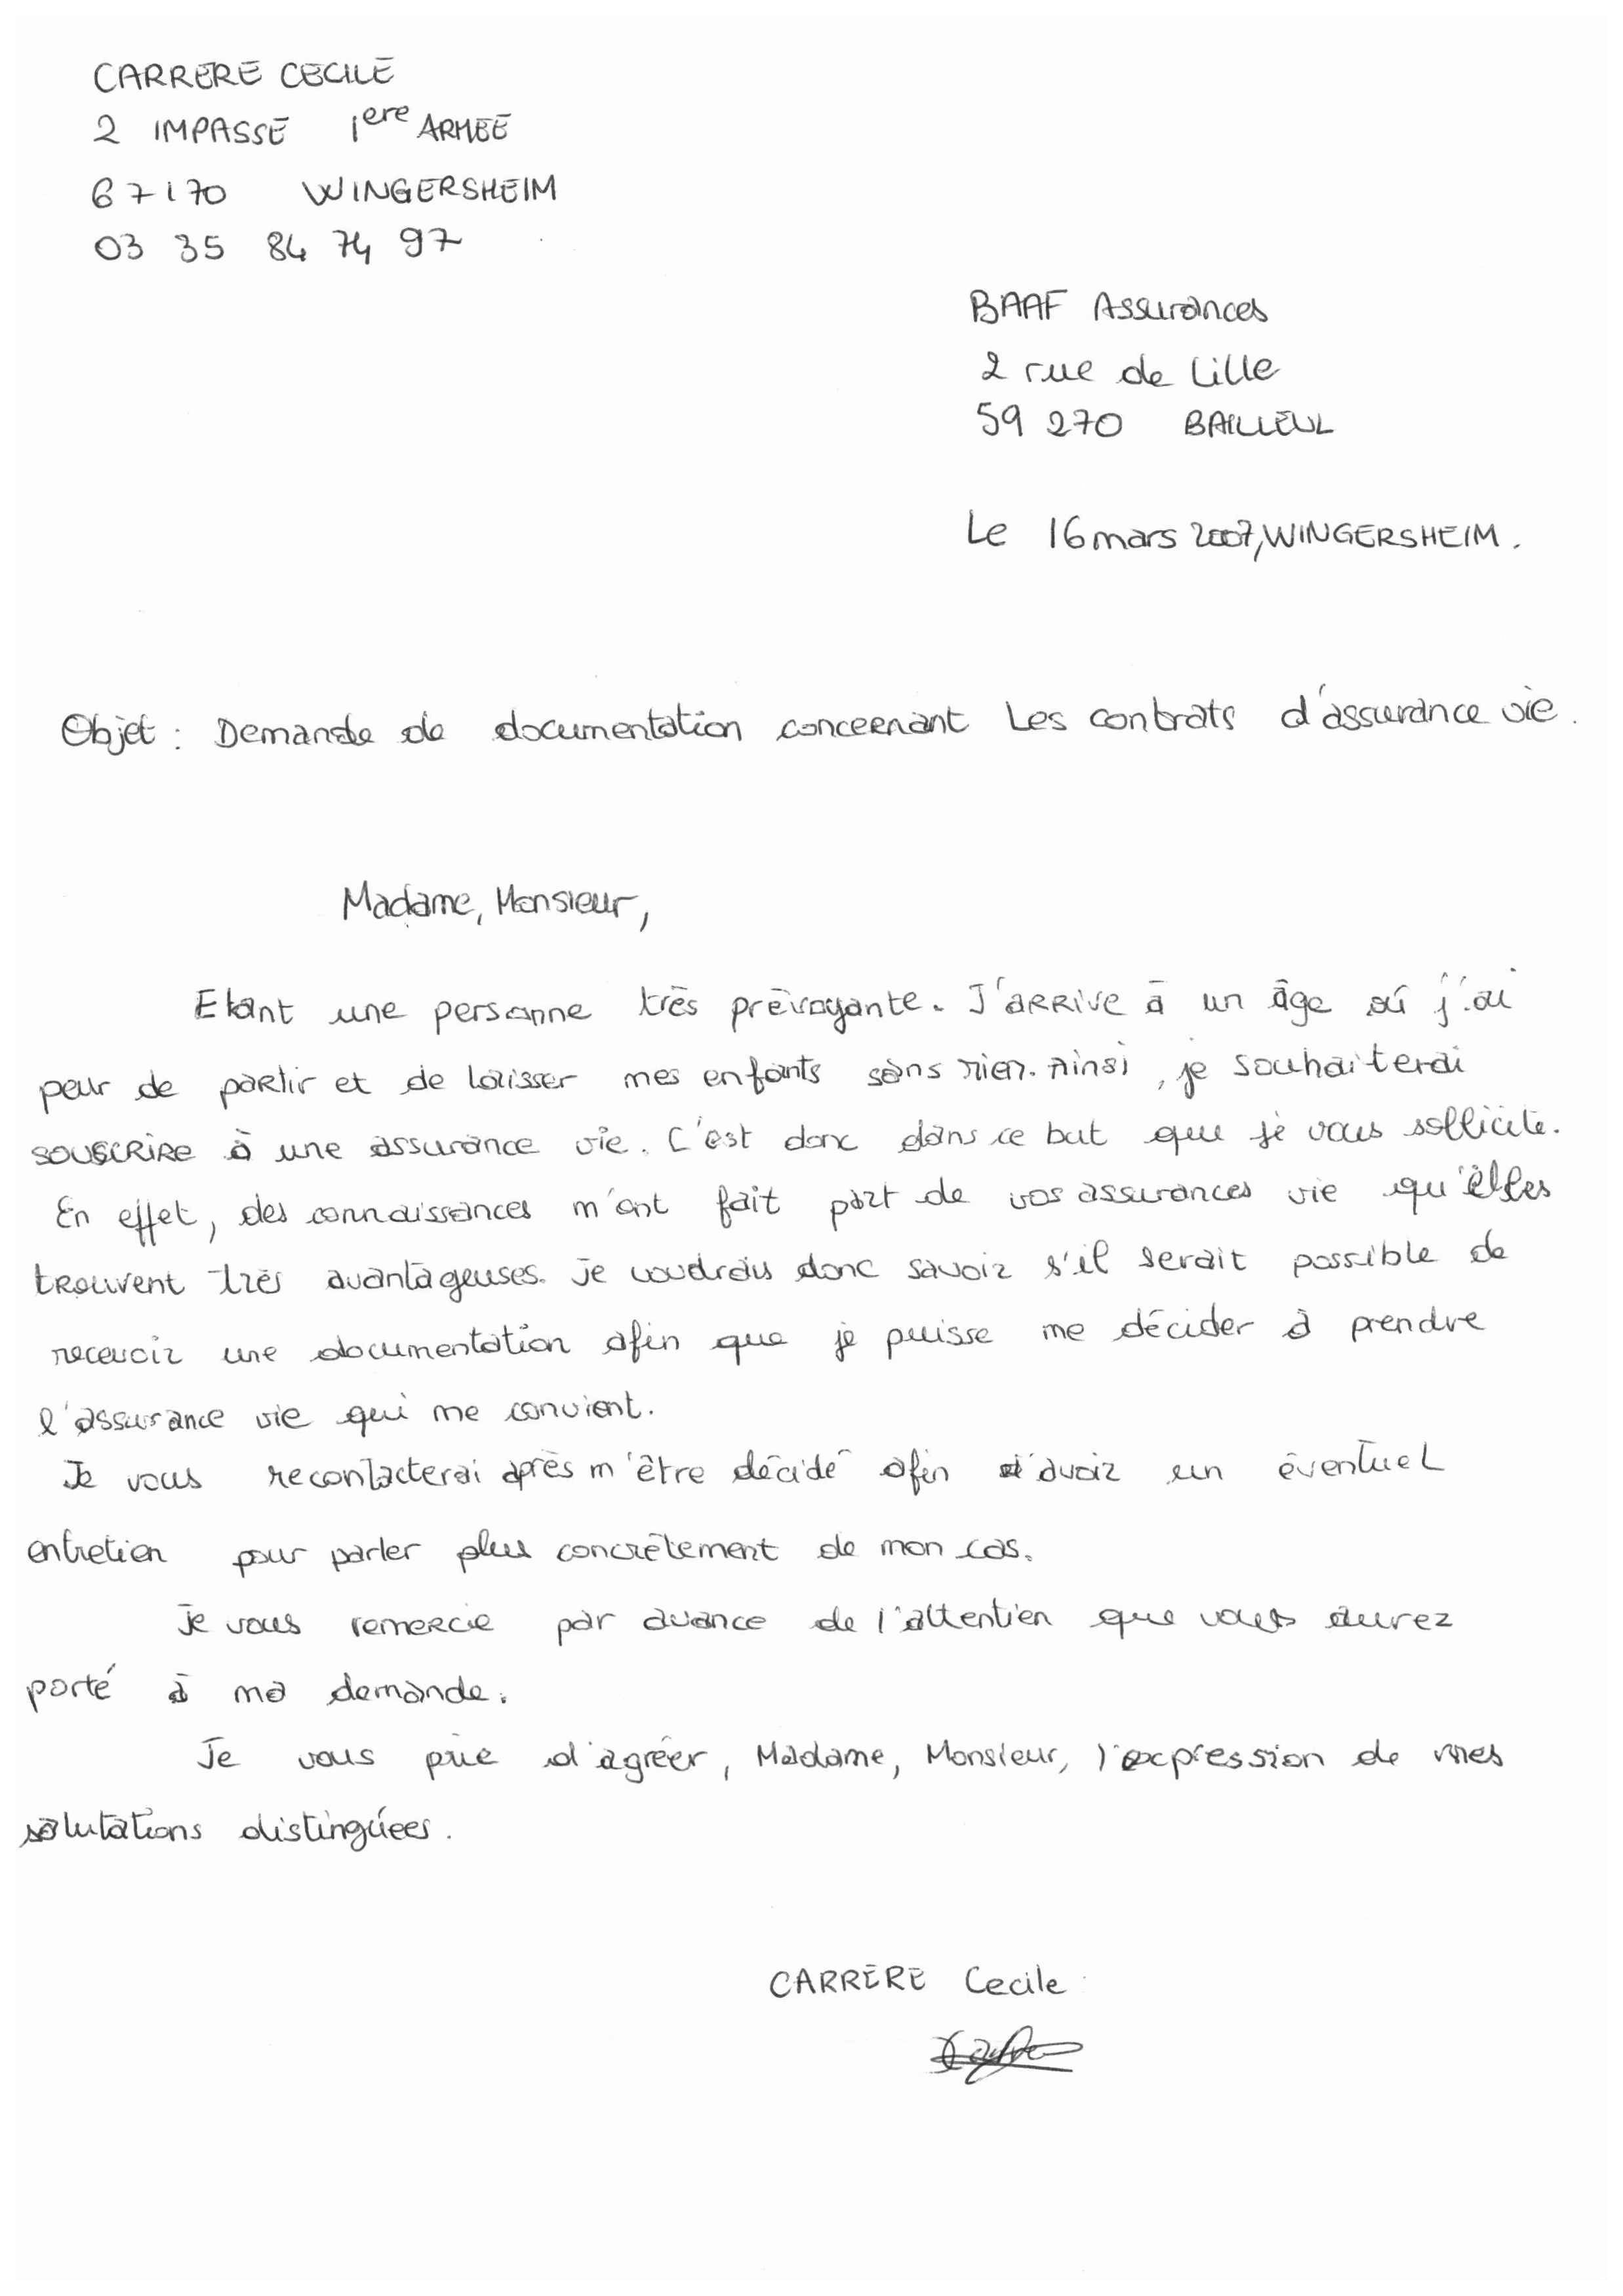 CARRERE CECILE
2 IMPASSE 1ere ARMEE
67170 WINGERSHEIM
03 35 84 74 97
BAAF Assurances
2 rue de Lille
59 270 BAILLEUL
Le 16 mars 2007, WINGERSHEIM.
Objet : Demande de documentation concernant les contrats d'assurance vie.
Madame, Monsieur,
Etant une personne très prévoyante. J'arrive à un âge où j'ai
peur de partir et de laisser mes enfants sans rien. Ainsi, je souhaiterai
souscrire à une assurance vie. C'est donc dans ce but que je vous sollicite.
En effet, des connaissances m'ont fait part de vos assurances vie qu'elles
trouvent très avantageuses. Je voudrais donc savoir s'il serait possible de
recevoir une documentation afin que je puisse me décider à prendre
l'assurance vie qui me convient.
Je vous recontacterai après m'être décidé afin d'avoir un éventuel
entretien pour parler plus concrètement de mon cas.
Je vous remercie par avance de l'attention que vous aurez
porté à ma demande.
Je vous prie d'agréer, Madame, Monsieur, l'expression de mes
salutations distinguées.
CARRERE Cecile